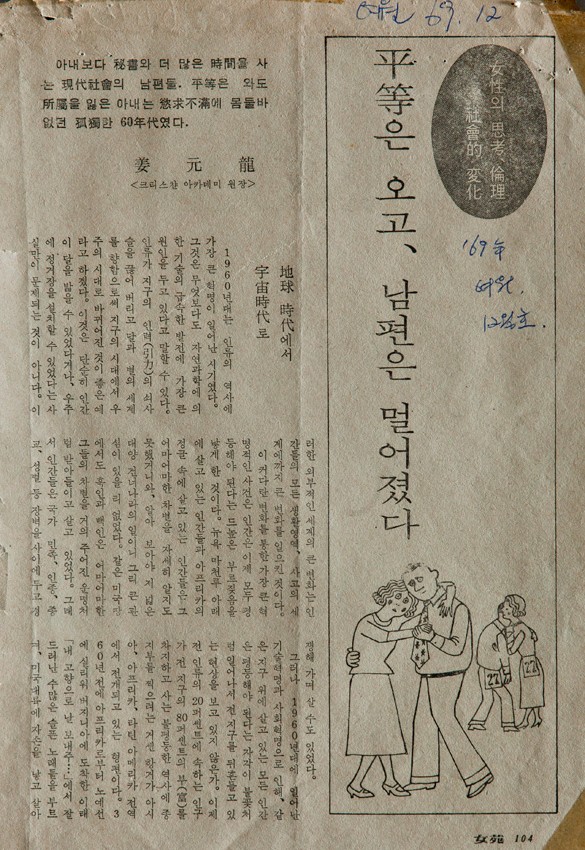 여원 69. 12
女性의 思考、倫理
社會的 変化
平等은 오고、 남편은 멀어졌다
'69年
여원.
12월호.
아내보다 秘書와 더 많은 時間을 사
는 現代社會의 남편들. 平等은 와도
所屬을 잃은 아내는 慾求不滿에 몸둘바
없던 孤獨한 60年代였다.
姜元龍
<크리스챤 아카데미 원장>
地球 時代에서
宇宙時代로
1960년대는 인류의 역사에
가장 큰 혁명이 일어난 시기였다.
그것은 무엇보다도 자연과학에의
한 기술의 급속한 발전에 가장 큰
원인을 두고 있다고 말할 수 있다.
인류가 지구의 인력(引力)의 쇠사
슬을 끊어 버리고 달과 별의 세계
를 향함으로써 지구의 시대에서 우
주의 시대로 바뀌어진 것이 좋은 예
라고 하겠다. 이것은 단순히 인간
이 달을 밟을 수 있었다거나, 우주
에 정거장을 설치할 수 있었다는 사
실만이 문제되는 것이 아니다. 이
러한 외부적인 세계의 큰 변화는 인
간들의 모든 생활영역、사고의 세
계에까지 큰 변화를 일으킨 것이다.
이 커다란 변화를 통한 가장 큰 혁
명적인 사건은 인간은 이제 모두 평
등해야 된다는 드높은 부르짖음을
낳게 한 것이다. 뉴욕 마천루 아래
에 살고 있는 인간들과 아프리카의
정글 속에 살고 있는 인간들은 그
어마어마한 차별을 자세히 알지도
못했거니와、알아 보아야 저 넓은
대양 건너나라의 일이니 그리 큰 관
심이 있을 리 없었다. 같은 미국땅
에서도 흑인과 백인은 어마어마한
그들의 차별을 거의 주어진 운명처
럼 받아들이고 살고 있었다. 그래
서 인간들은 국가、민족、인종、종
교、성별 등 장벽을 사이에 두고 경
쟁해 가며 살 수도 있었다.
그러나、1960년대에 일어난
기술혁명과 사회혁명으로 인해、같
은 지구 위에 살고 있는 모든 인간
은 평등해야 된다는 자각이 불꽃처
럼 일어나서 전 지구를 뒤흔들고 있
는 현상을 보고 있지 않은가. 이제
전 인류의 20퍼센트에 속하는 인구
가 전 지구의 80퍼센트의 부(富)를
차지하고 사는 불평등한 역사에 종
지부를 찍으려는 거센 항거가 아시
아、아프리카、라틴 아메리카 전역
에서 전개되고 있는 형편이다. 3
60년 전에 아프리카로부터 노예선
에 실리워 버지니아에 도착한 이래
「내 고향으로 날 보내주…」에서 잘
드러난 수많은 슬픈 노래들을 부르
며、미국대륙에 자손을 낳고 살아
27
27
女苑 104